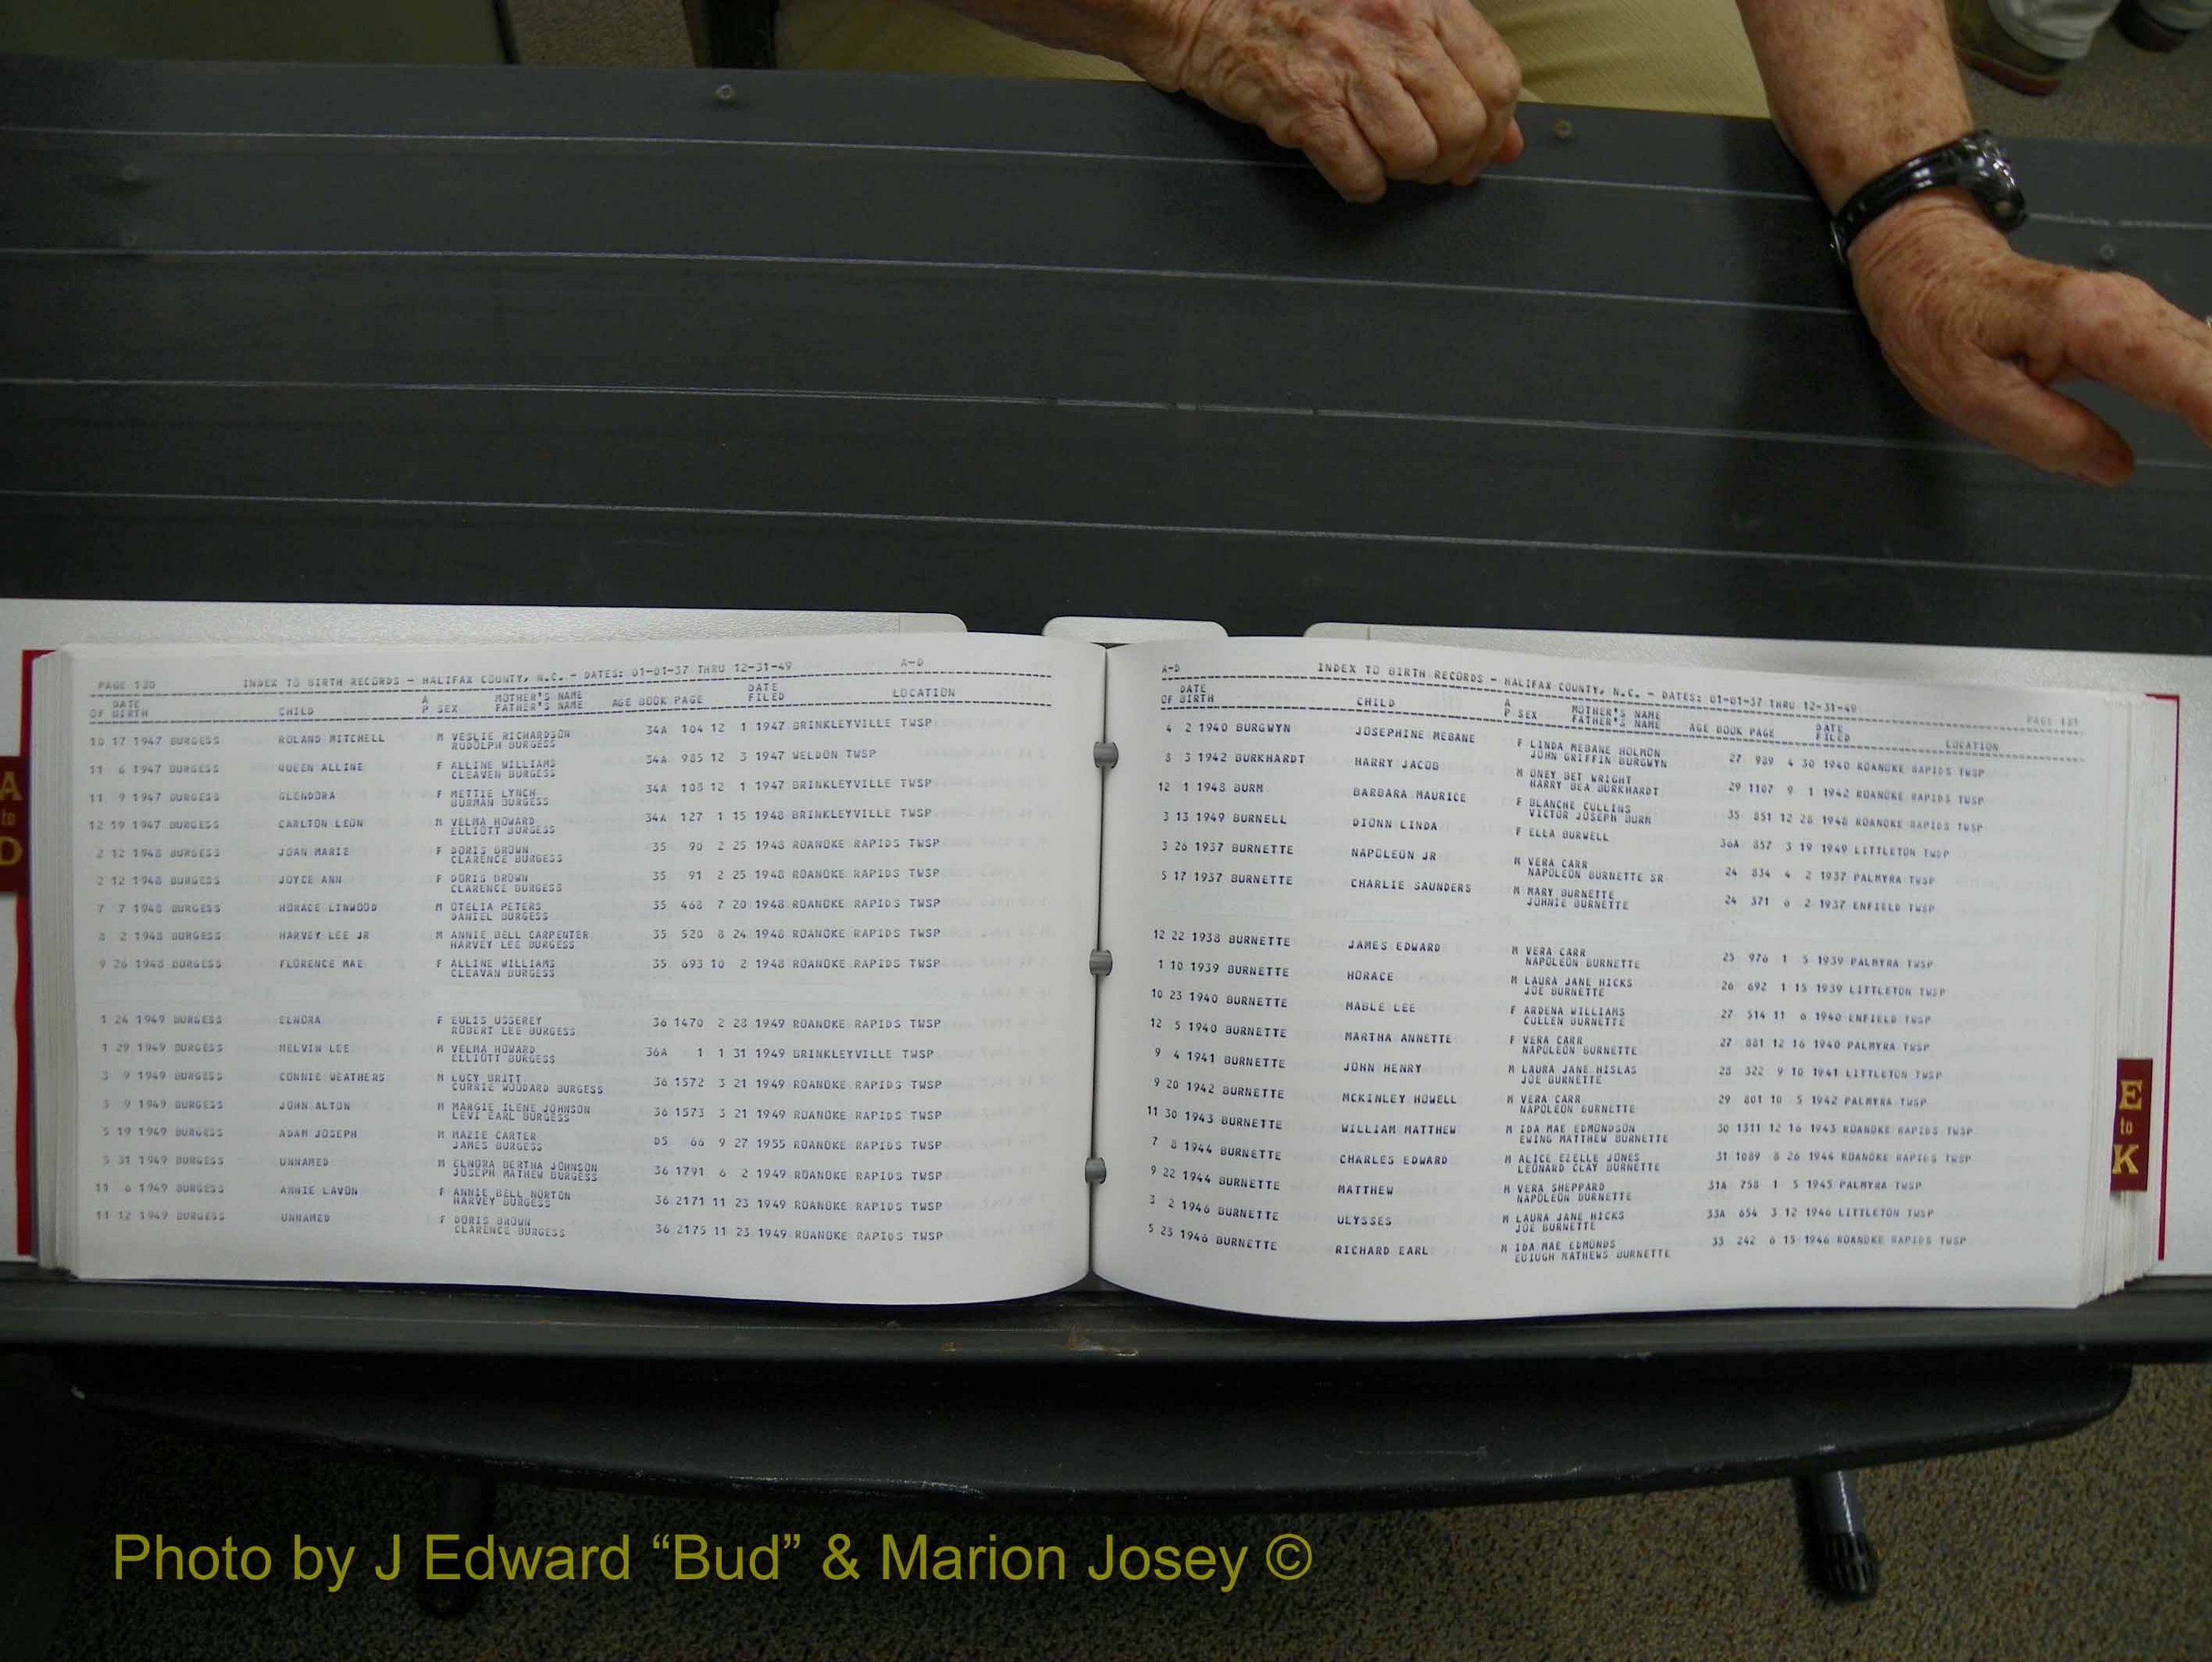 PAGE 180 INDEX TO BIRTH RECORDS - HALIFAX COUNTY, N.C. - DATES: 01-01-37 THRU 12-31-49 A-D
DATE OF BIRTH CHILD A P SEX MOTHER'S NAME FATHER'S NAME AGE BOOK PAGE DATE FILED LOCATION
10 17 1947 BURGESS ROLAND MITCHELL M VESLIE RICHARDSON 34A 104 12 1 1947 BRINKLEYVILLE TWSP
RUDOLPH BURGESS
11 6 1947 BURGESS QUEEN ALLINE F ALLINE WILLIAMS 34A 985 12 3 1947 WELDON TWSP
CLEAVEN BURGESS
11 9 1947 BURGESS GLENDORA F METTIE LYNCH 34A 108 12 1 1947 BRINKLEYVILLE TWSP
BURMAN BURGESS
12 19 1947 BURGESS CARLTON LEON M VELMA HOWARD 34A 127 1 15 1948 BRINKLEYVILLE TWSP
ELLIOTT BURGESS
2 12 1948 BURGESS JOAN MARIE F DORIS BROWN 35 90 2 25 1948 ROANOKE RAPIDS TWSP
CLARENCE BURGESS
2 12 1948 BURGESS JOYCE ANN F DORIS BROWN 35 91 2 25 1948 ROANOKE RAPIDS TWSP
CLARENCE BURGESS
7 7 1948 BURGESS HORACE LINWOOD M OTELIA PETERS 35 468 7 20 1948 ROANOKE RAPIDS TWSP
DANIEL BURGESS
8 2 1948 BURGESS HARVEY LEE JR M ANNIE BELL CARPENTER 35 520 8 24 1948 ROANOKE RAPIDS TWSP
HARVEY LEE BURGESS
9 26 1948 BURGESS FLORENCE MAE F ALLINE WILLIAMS 35 693 10 2 1948 ROANOKE RAPIDS TWSP
CLEAVAN BURGESS
1 24 1949 BURGESS ELNORA F EULIS USSEREY 36 1470 2 28 1949 ROANOKE RAPIDS TWSP
ROBERT LEE BURGESS
1 29 1949 BURGESS MELVIN LEE M VELMA HOWARD 36A 1 1 31 1949 BRINKLEYVILLE TWSP
ELLIOTT BURGESS
3 9 1949 BURGESS CONNIE WEATHERS M LUCY BRITT 36 1572 3 21 1949 ROANOKE RAPIDS TWSP
CURRIE WOODARD BURGESS
3 9 1949 BURGESS JOHN ALTON M MARGIE ILENE JOHNSON 36 1573 3 21 1949 ROANOKE RAPIDS TWSP
LEVI EARL BURGESS
5 19 1949 BURGESS ADAM JOSEPH M MAZIE CARTER D5 66 9 27 1955 ROANOKE RAPIDS TWSP
JAMES BURGESS
5 31 1949 BURGESS UNNAMED M ELNORA BERTHA JOHNSON 36 1791 6 2 1949 ROANOKE RAPIDS TWSP
JOSEPH MATHEW BURGESS
11 6 1949 BURGESS ANNIE LAVON F ANNIE BELL NORTON 36 2171 11 23 1949 ROANOKE RAPIDS TWSP
HARVEY BURGESS
11 12 1949 BURGESS UNNAMED F DORIS BROWN 36 2175 11 23 1949 ROANOKE RAPIDS TWSP
CLARENCE BURGESS
A-D INDEX TO BIRTH RECORDS - HALIFAX COUNTY, N.C. - DATES: 01-01-37 THRU 12-31-49 PAGE 181
DATE OF BIRTH CHILD A P SEX MOTHER'S NAME FATHER'S NAME AGE BOOK PAGE DATE FILED LOCATION
4 2 1940 BURGWYN JOSEPHINE MEBANE F LINDA MEBANE HOLMON 27 989 4 30 1940 ROANOKE RAPIDS TWSP
JOHN GRIFFIN BURGWYN
8 3 1942 BURKHARDT HARRY JACOB M ONEY BET WRIGHT 29 1107 9 1 1942 ROANOKE RAPIDS TWSP
HARRY BEA BURKHARDT
12 1 1948 BURM BARBARA MAURICE F BLANCHE CULLINS 35 851 12 28 1948 ROANOKE RAPIDS TWSP
VICTOR JOSEPH BURM
3 13 1949 BURNELL DIONN LINDA F ELLA BURWELL 36A 857 3 19 1949 LITTLETON TWSP
3 26 1937 BURNETTE NAPOLEON JR M VERA CARR 24 834 4 2 1937 PALMYRA TWSP
NAPOLEON BURNETTE SR
5 17 1937 BURNETTE CHARLIE SAUNDERS M MARY BURNETTE 24 371 6 2 1937 ENFIELD TWSP
JOHNIE BURNETTE
12 22 1938 BURNETTE JAMES EDWARD M VERA CARR 25 976 1 5 1939 PALMYRA TWSP
NAPOLEON BURNETTE
1 10 1939 BURNETTE HORACE M LAURA JANE HICKS 26 692 1 15 1939 LITTLETON TWSP
JOE BURNETTE
10 23 1940 BURNETTE MABLE LEE F ARDENA WILLIAMS 27 514 11 6 1940 ENFIELD TWSP
CULLEN BURNETTE
12 5 1940 BURNETTE MARTHA ANNETTE F VERA CARR 27 881 12 16 1940 PALMYRA TWSP
NAPOLEON BURNETTE
9 4 1941 BURNETTE JOHN HENRY M LAURA JANE HISLAS 28 322 9 10 1941 LITTLETON TWSP
JOE BURNETTE
9 20 1942 BURNETTE MCKINLEY HOWELL M VERA CARR 29 801 10 5 1942 PALMYRA TWSP
NAPOLEON BURNETTE
11 30 1943 BURNETTE WILLIAM MATTHEW M IDA MAE EDMONDSON 30 1311 12 16 1943 ROANOKE RAPIDS TWSP
EWING MATTHEW BURNETTE
7 8 1944 BURNETTE CHARLES EDWARD M ALICE EZELLE JONES 31 1089 8 26 1944 ROANOKE RAPIDS TWSP
LEONARD CLAY BURNETTE
9 22 1944 BURNETTE MATTHEW M VERA SHEPPARD 31A 758 1 5 1945 PALMYRA TWSP
NAPOLEON BURNETTE
3 2 1946 BURNETTE ULYSSES M LAURA JANE HICKS 33A 654 3 12 1946 LITTLETON TWSP
JOE BURNETTE
5 23 1946 BURNETTE RICHARD EARL M IDA MAE EDMONDS 33 242 6 15 1946 ROANOKE RAPIDS TWSP
MATHEWS BURNETTE
A
to
D
E
to
K
Photo by J Edward “Bud” & Marion Josey ©